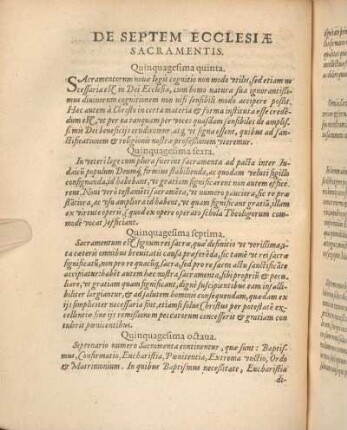 DE SEPTEM ECCLESIÆ
SACRAMENTIS.
Quinquagesima quinta.
SAcramentorum nouæ legis cognitio non modo vtilis, sed etiam ne
cessaria est in Dei Ecclesia, cum homo natura sua ignorantissi-
mus diuinorum cognitionem non nisi sensibili modo accipere possit.
Hec autem à Christo in certa materia & forma instituta esse creden-
dum est, vt per ea tanquam per voces quasdam sensibiles de amplis-
simis Dei beneficijs erudiremur, atq; vt signa essent, quibus ad san-
ctificationem & religionis nostræ professionem vteremur.
Quinquagesima sexta.
In veteri lege cum plura fuerint sacramenta ad pacta inter Iu-
dæorū populum Deumq; firmius stabilienda, ac quodam veluti sigillo
consignanda, id habebant, vt gratiam significarent non autem effice
rent. Noui verò testamēti sacramēta, vt numero pauciora, sic re præ
stātiora, ac vsu ampliora id habent, vt quam significant gratiā, illam
ex virtute operis, quod ex opere operato schola Theologorum com-
mode vocat, efficiant.
Quinquagesima septima.
Sacramentum est signum rei sacræ, quæ definitio vt verissima, i-
ta cæteris omnibus breuitatis causa præferēda, sic tamē vt rei sacræ
significatū, non pro re quauis sacra, sed pro re sacra assu sanctificāte
accipiatur habēt autem hæc nostra sacramenta, sibi proprium & pecu-
liare, vt gratiam quam significant, dignè suscipientibus eam infalli-
biliter largiantur, & ad salutem hominis consequendam, quædam ex
ijs simpliciter necessaria sint, etiamsi solus Christus per potestatē ex-
cellentiæ sine ijs remissionem peccatorum concesserit & gratiam con
tulerit pœnitentibus.
Quinquagesima octaua.
Septenario numero Sacramenta continentur, quæ sunt: Baptis-
mus, Confirmatio, Eucharistia, Pœnitentia, Extrema vnctio, Ordo
& Matrimonium. In quibus Baptismus necessitate, Eucharistia
di-